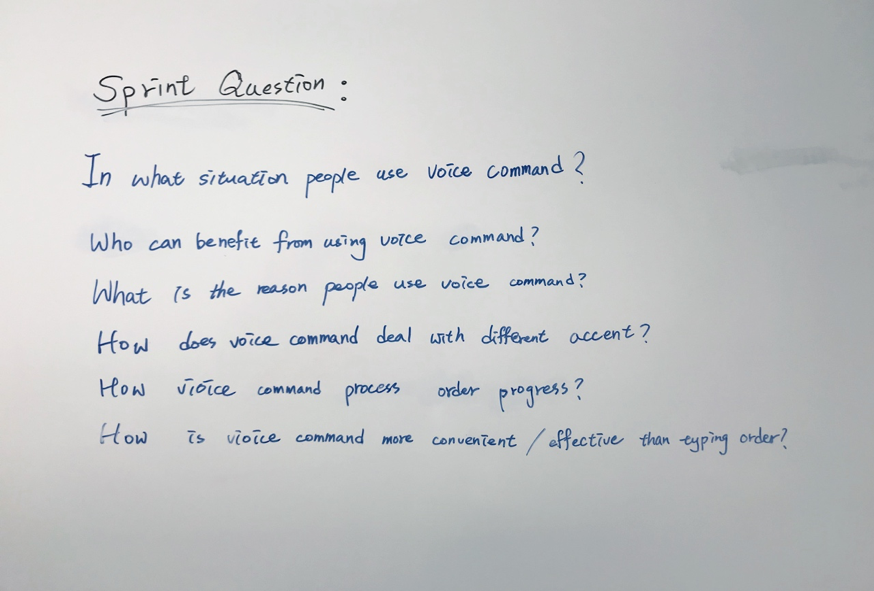 Sprint Question :
In what situation people use voice command?
Who can benefit from using voice command?
What is the reason people use voice command?
How does voice command deal with different accent?
How vioice command process order progress?
How is vioice command more convenient / effective than typing order?